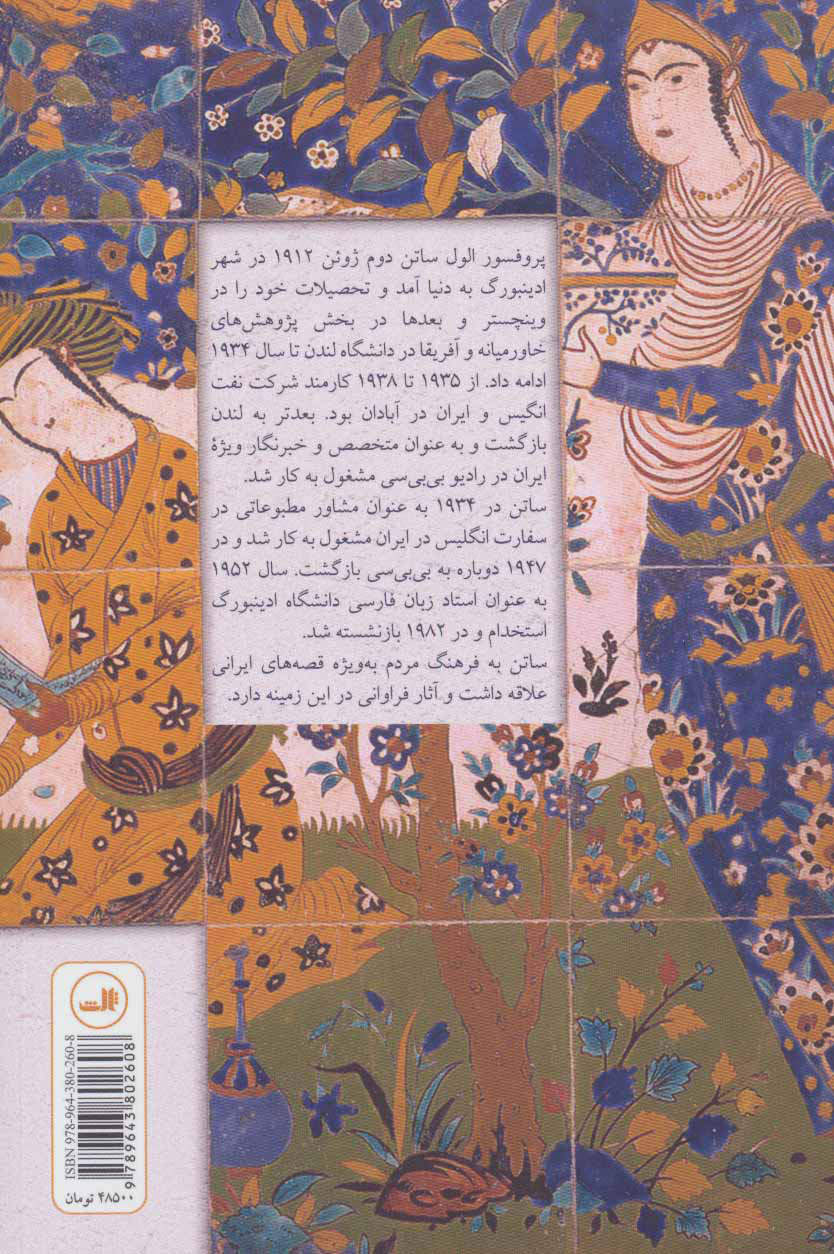 پروفسور الول ساتن دوم ژوئن ۱۹۱۲ در شهر
ادینبورگ به دنیا آمد و تحصیلات خود را در
وینچستر و بعدها در بخش پژوهش‌های
خاورمیانه و آفریقا در دانشگاه لندن تا سال ۱۹۳۴
ادامه داد. از ۱۹۳۵ تا ۱۹۳۸ کارمند شرکت نفت
انگیس و ایران در آبادان بود. بعدتر به لندن
بازگشت و به عنوان متخصص و خبرنگار ویژهٔ
ایران در رادیو بی‌بی‌سی مشغول به کار شد.
ساتن در ۱۹۳۴ به عنوان مشاور مطبوعاتی در
سفارت انگلیس در ایران مشغول به کار شد و در
۱۹۴۷ دوباره به بی‌بی‌سی بازگشت. سال ۱۹۵۲
به عنوان استاد زبان فارسی دانشگاه ادینبورگ
استخدام و در ۱۹۸۲ بازنشسته شد.
ساتن به فرهنگ مردم به‌ویژه قصه‌های ایرانی
علاقه داشت و آثار فراوانی در این زمینه دارد.
ثالث
ISBN 978-964-380-260-8
9 789643 802608
۴۸۵۰۰ تومان